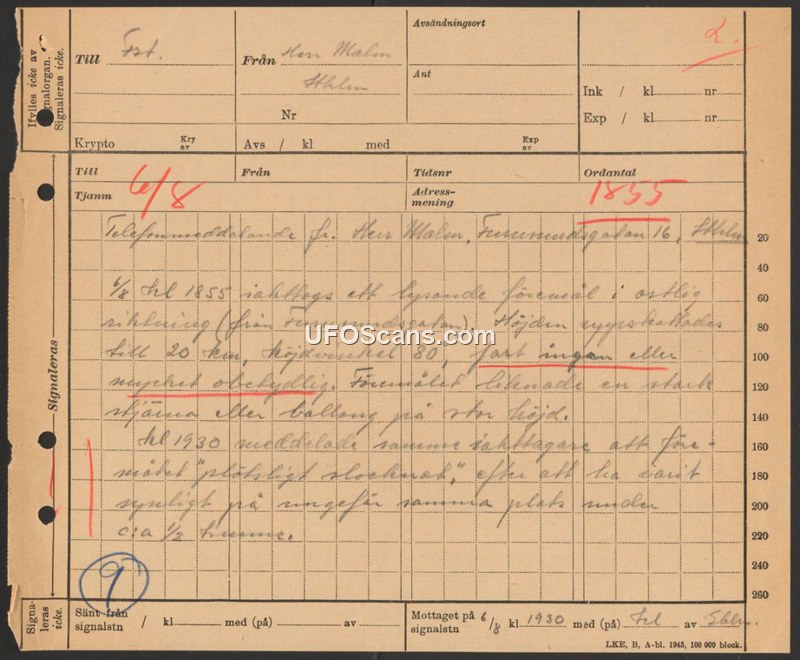 Ifylles icke av
signalorgan.
Signaleras icke.
Till Fst.
Från Herr Malm
Sthlm
Nr
Avsändningsort
Ant
2.
Ink / kl nr
Exp / kl nr
Krypto Kry av
Avs / kl med Exp av
Till Från Tidsnr Ordantal
Tjanm 6/8 Adressmening 1855
Telefonmeddelande fr. Herr Malm, Furusundsgatan 16, Sthlm
6/8 kl 1855 iakttogs ett lysande föremål i ostlig
riktning (från Furusundsgatan). Höjden uppskattades
till 20 km, höjdvinkel 80, fart ingen eller
mycket obetydlig. Föremålet liknade en stark
stjärna eller ballong på stor höjd.
Kl 1930 meddelade samme iakttagare att före-
målet "plötsligt slocknat", efter att ha varit
synligt på ungefär samma plats under
c:a 1/2 timme.
20
40
60
80
100
120
140
160
180
200
220
240
260
Signaleras
9
UFOScans.com
Signaleras icke.
Sänt från signalstn / kl med (på) av
Mottaget på signalstn 6/8 kl 1930 med (på) tel av
LKE, B, A-bl. 1945, 100 000 block.